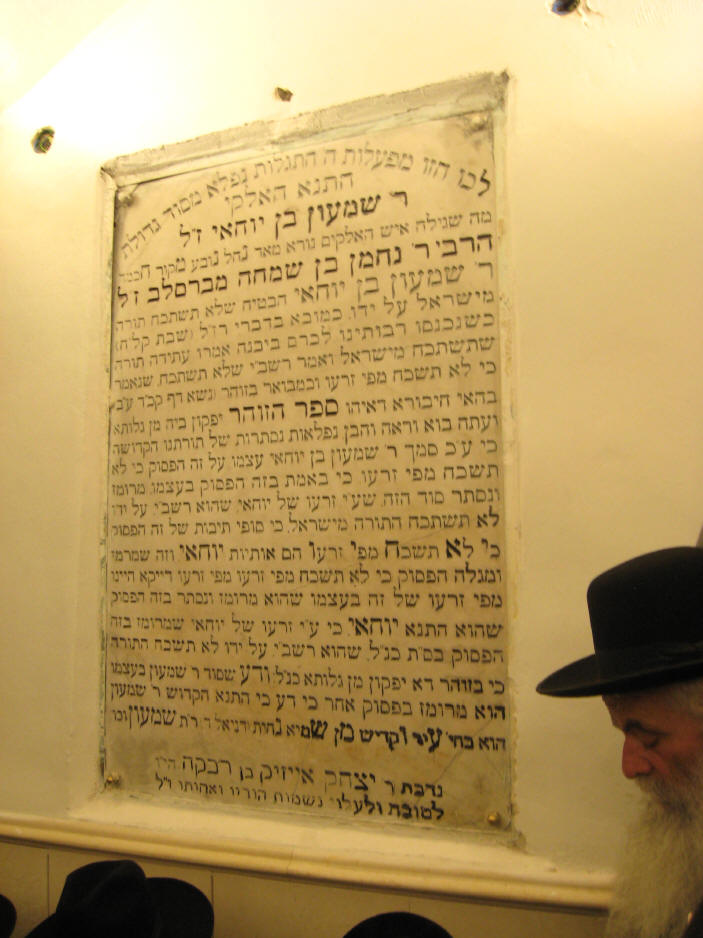 לכו חזו מפעלות ה' התגלות נפלא מסוד גדולת
התנא האלקי
ר' שמעון בן יוחאי ז"ל
מה שגילה איש האלקים נורא מאד נחל נובע מקור חכמה
הרב ר' נחמן בן שמחה מברסלב ז"ל
ר' שמעון בן יוחאי הבטיח שלא תשתכח תורה
מישראל על ידו. כמובא בדברי רז"ל (שבת קל"ח)
כשנכנסו רבותינו לכרם ביבנה אמרו עתידה תורה
שתשתכח מישראל ואמר רשב"י שלא תשתכח. שנאמר
כי לא תשכח מפי זרעו וכמבואר בזוהר (נשא דף קכ"ד ע"ב)
בהאי חיבורא דאיהו ספר הזוהר יפקון ביה מן גלותא
ועתה בוא וראה והבן נפלאות נסתרות של תורתנו הקדושה
כי ע"כ סמך ר' שמעון בן יוחאי עצמו על זה הפסוק כי לא
תשכח מפי זרעו. כי באמת בזה הפסוק בעצמו. מרומז
ונסתר סוד הזה. שע"י זרעו של יוחאי שהוא רשב"י. על ידו
לא תשתכח התורה מישראל. כי סופי תיבות של זה הפסוק
כי לא תשכח מפי זרעו הם אותיות יוחאי. וזה שמרמז
ומגלה הפסוק כי לא תשכח מפי זרעו מפי זרעו דייקא היינו
מפי זרעו של זה בעצמו שהוא מרומז ונסתר בזה הפסוק
שהוא התנא יוחאי. כי ע"י זרעו של יוחאי שמרומז בזה
הפסוק בס"ת כנ"ל. שהוא רשב"י. על ידו לא תשכח התורה
כי בזוהר דא יפקון מן גלותא כנ"ל. ודע שסוד ר' שמעון בעצמו
הוא מרומז בפסוק אחר כי דע כי התנא הקדוש ר' שמעון
הוא בחי' עיר וקדיש מן שמיא נחית (דניאל ד') ר"ת שמעון וכו'
נדבת ר' יצחק אייזיק בן רבקה הי"ו
לטובת ולעלוי נשמות הוריו ואחותו ז"ל